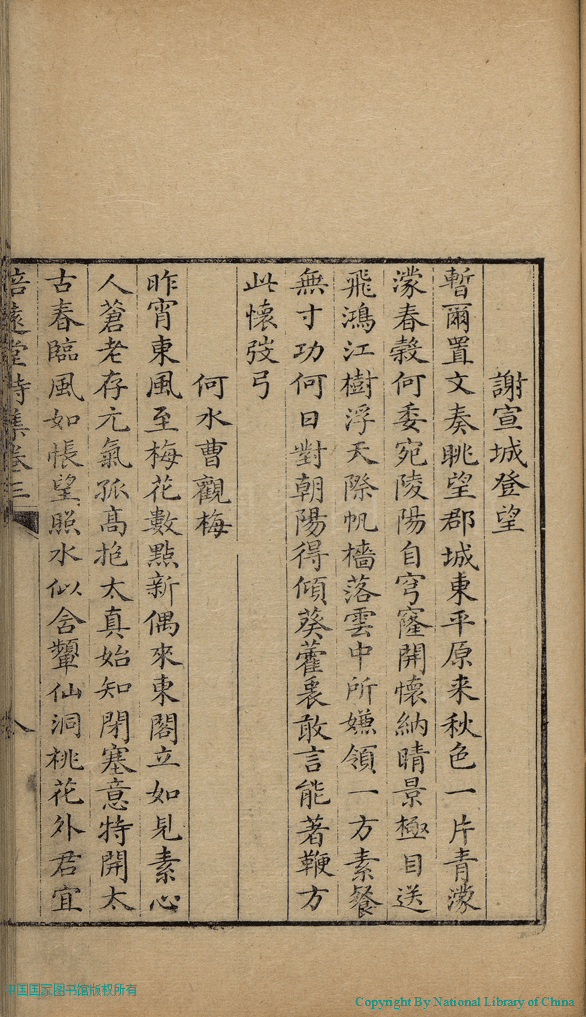 謝宣城登望
暫爾置文奏眺望郡城東平原来秋色一片青濛
濛春穀何委宛陵陽自穹窿開懷納晴景極目送
飛鴻江樹浮天際帆檣落雲中所嫌領一方素餐
無寸功何日對朝陽得傾葵藿衷敢言能著鞭方
此懷弢弓
何水曹觀梅
昨宵東風至梅花數點新偶來東閣立如見素心
人蒼老存元氣孤髙抱太真始知閉塞意特開太
古春臨風如悵望照水似含顰仙洞桃花外君宜
培遠堂詩集卷三
八
中国国家图书馆版权所有
Copyright By National Library of China